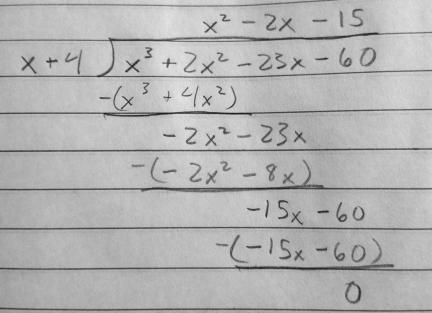 x² - 2x - 15
x + 4 ) x³ + 2x² - 23x - 60
-(x³ + 4x²)
- 2x² - 23x
-(- 2x² - 8x)
-15x - 60
-(-15x - 60)
0